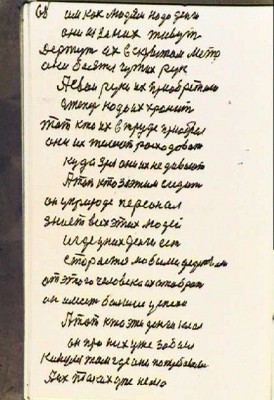 68 им как людям надо день
они из зыких живут
держут их в скрытом метр
они боятся чужих рук
А свои руки их приобретают
и тежер надо их хранит
тот кто их в труде приобрел
они их телают расходоват
куда зря они их не дивают
А тот кто за тим следит
он у природе персонал
знает всех этих людей
и где у них день ест
старается любыми средствам
от этого человека их отобрат
он имеет большие успехи
А тот кто эти деньга клал
он про них уже забыл
Кинулся там где они потребовали
А их таких уже нема